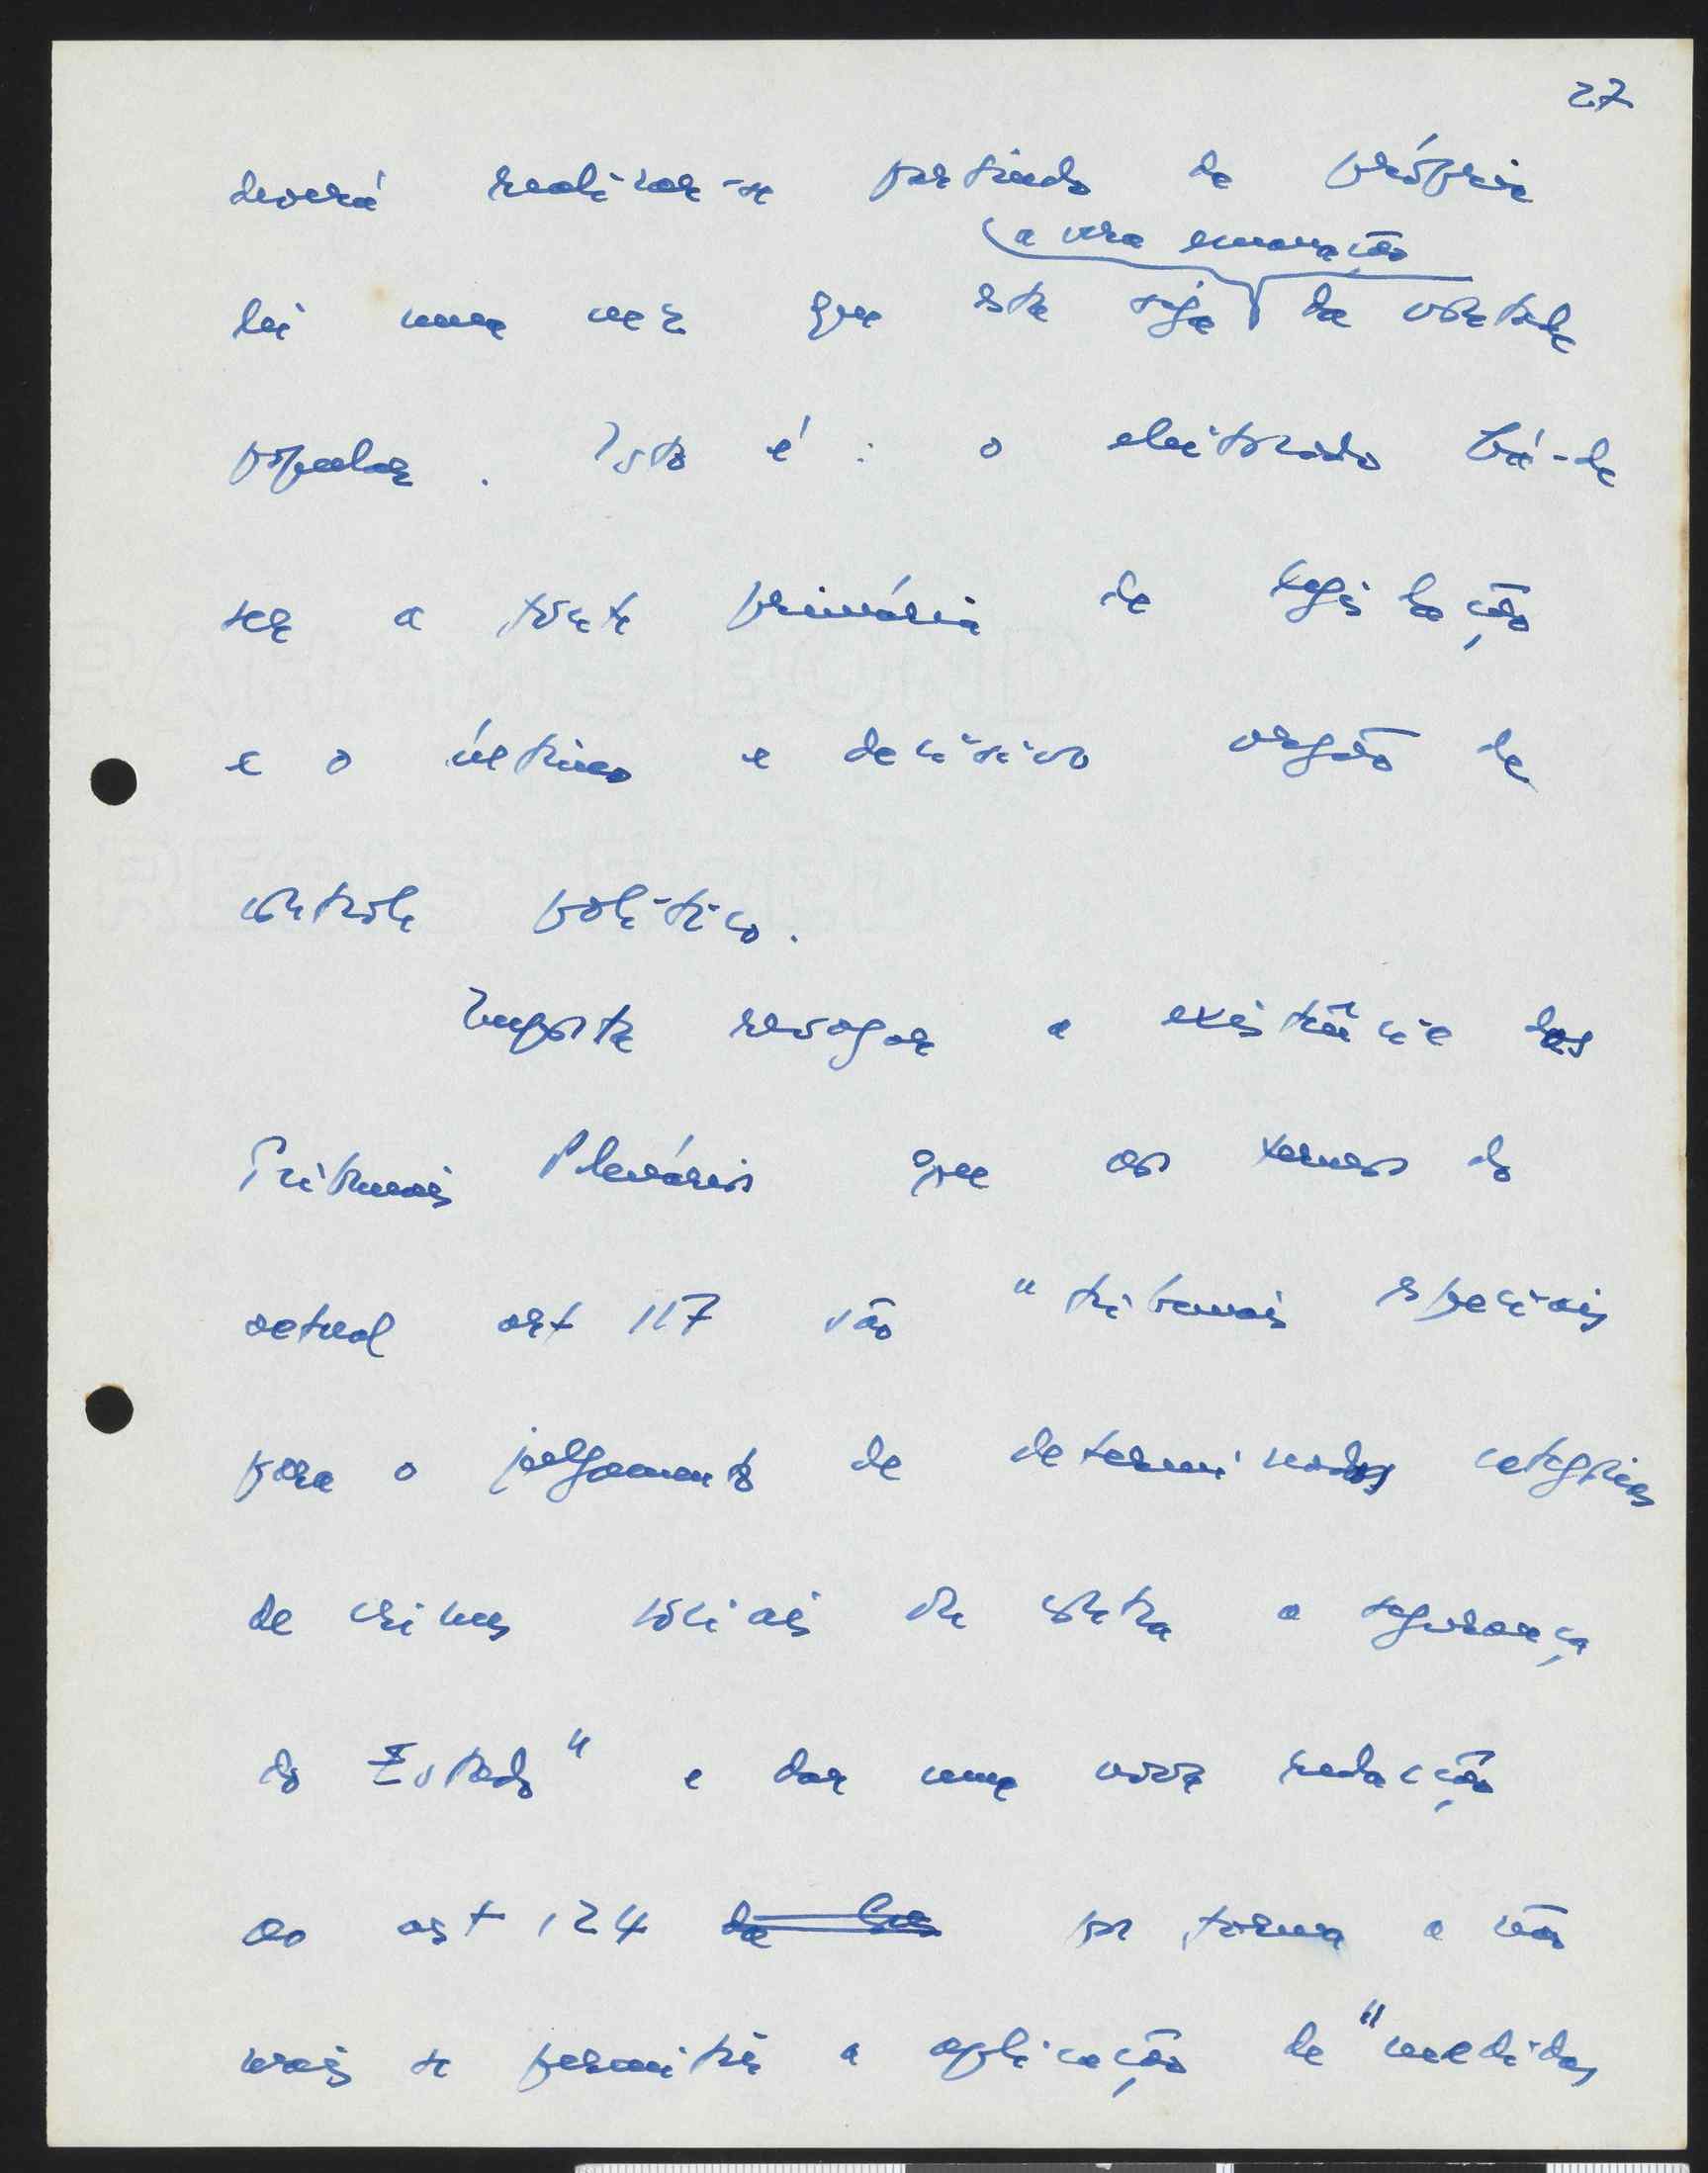 27
deverá realizar-se partindo da própria
a vera emanação
lei uma vez que esta seja da vontade
popular. Isto é: o eleitorado há-de
ser a fonte primária de legislação
e o último e decisivo orgão de
contrôle político.
Importa revogar a existência dos
Tribunais Plenários que nos termos do
actual art 117 são "tribunais especiais
para o julgamento de determinadas categorias
de crimes sociais ou contra a segurança
do Estado" e dar uma nova redacção
ao art 124 da por forma a não
mais se permitir a aplicação de "medidas